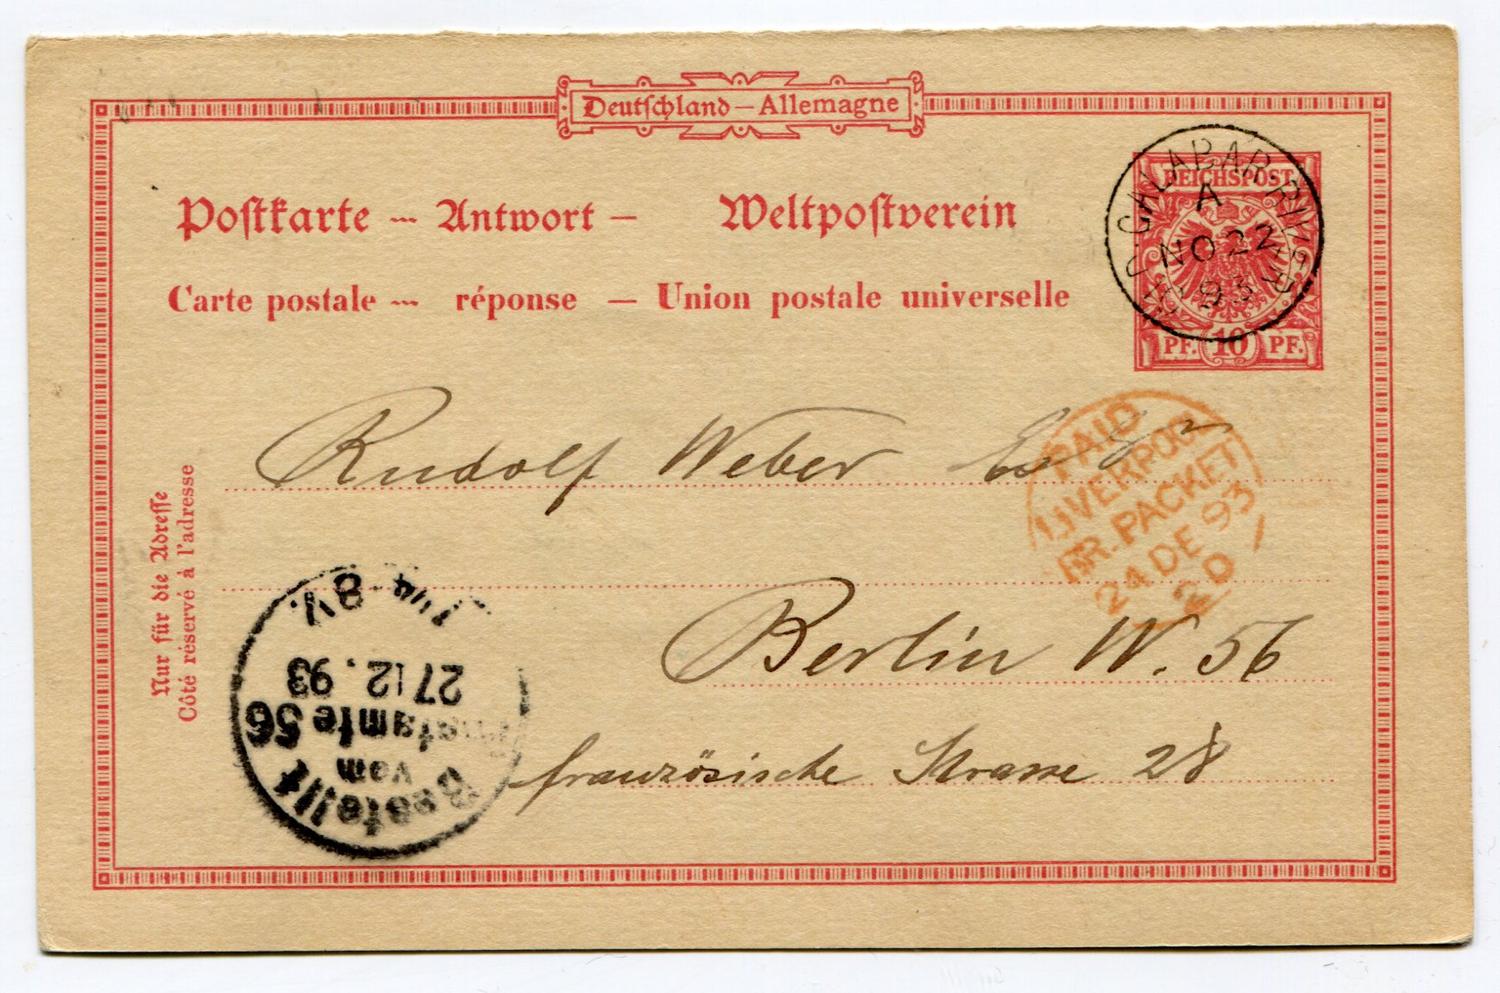 Deutschland – Allemagne
Postkarte – Antwort –
Weltpostverein
Carte postale – réponse – Union postale universelle
REICHSPOST
PF. 10 PF.
CALABAR·RIVER
A
NO 22
93
Rudolf Weber Esqr
PAID
LIVERPOOL
BR. PACKET
24 DE 93
2D
Berlin W. 56
französische Strasse 28
Nur für die Adresse
Côté réservé à l'adresse
Bestellt
vom
Postamte 56
27 12. 93
8V.